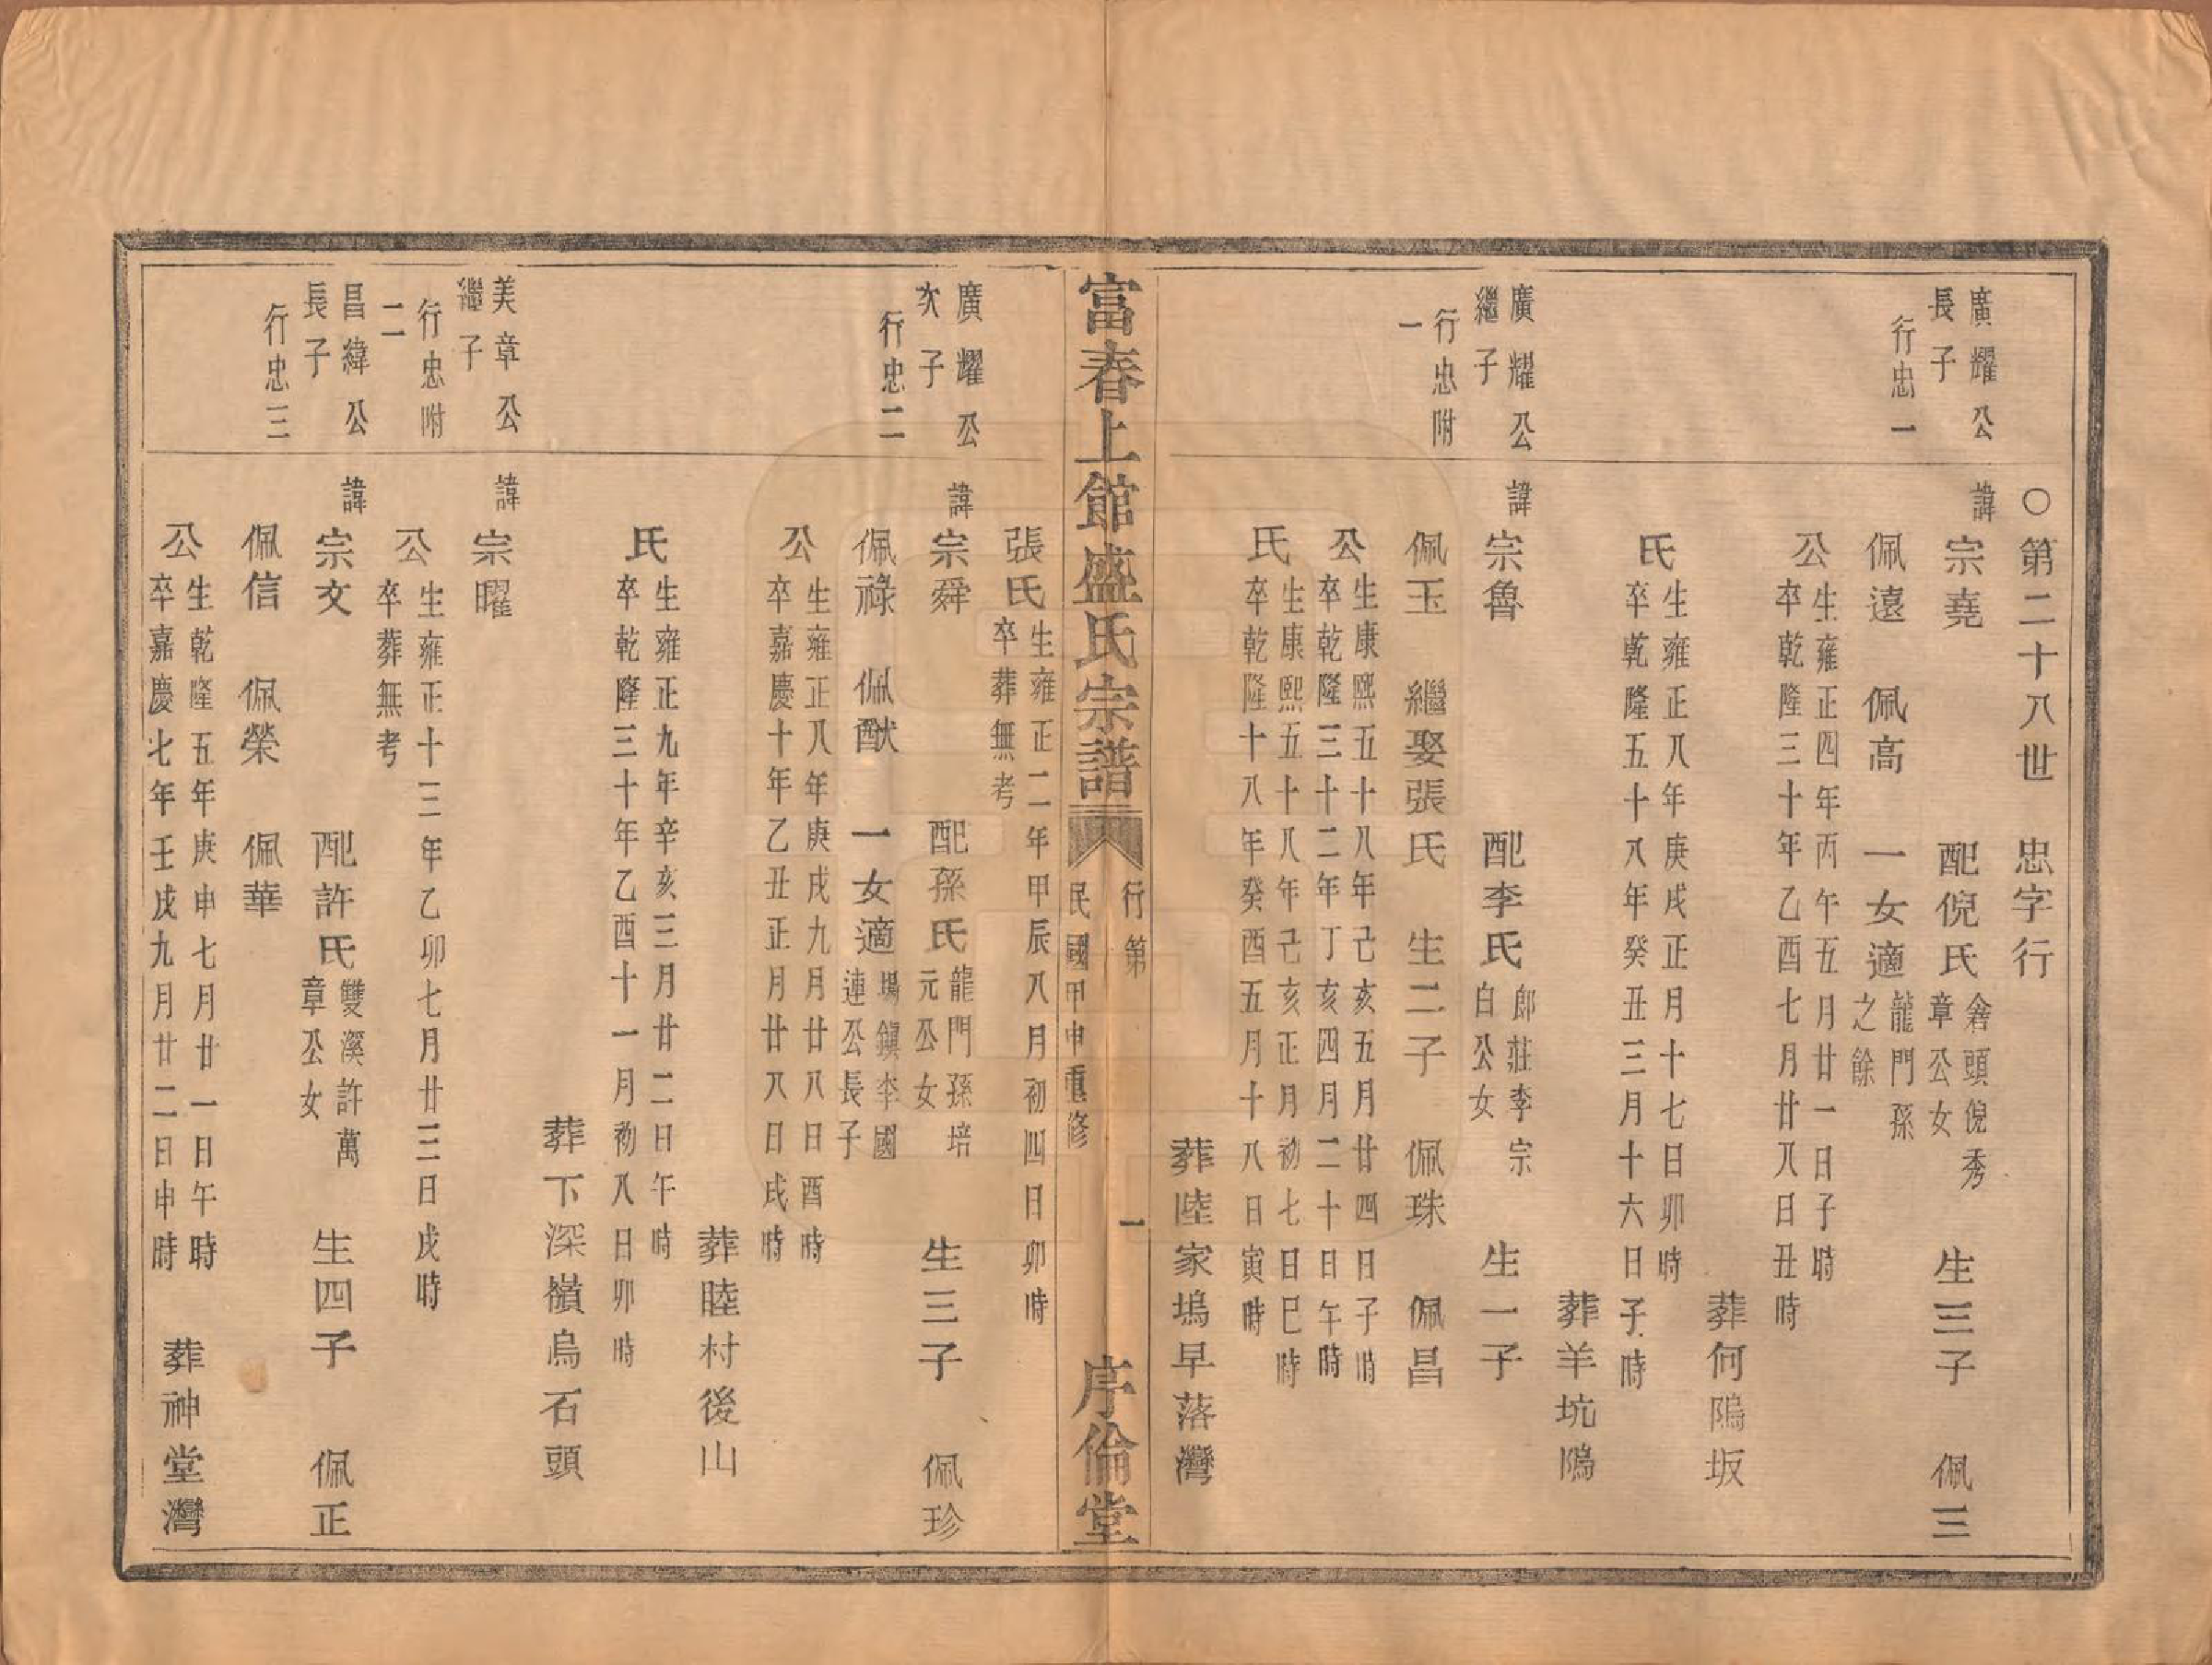 ○第二十八世　忠字行
廣耀公
長子
行忠一
諱宗堯　配倪氏
舍頭倪秀
章公女
生三子　佩三
佩遠　佩高　一女適
龍門孫
之餘
公
生雍正四年丙午五月廿一日子時
卒乾隆三十年乙酉七月廿八日丑時
葬何隝坂
氏
生雍正八年庚戌正月十七日卯時
卒乾隆五十八年癸丑三月十六日子時
葬羊坑隝
廣耀公
繼子
行忠附
一
諱宗魯　配李氏
郎莊李宗
白公女
生一子
佩玉　繼娶張氏　生二子　佩珠　佩昌
公
生康熙五十八年己亥五月廿四日子時
卒乾隆三十二年丁亥四月二十日午時
氏
生康熙五十八年己亥正月初七日巳時
卒乾隆十八年癸酉五月十八日寅時
葬陸家塢早落灣
富春上館盛氏宗譜
行第
一
民國甲申重修
序倫堂
張氏
生雍正二年甲辰八月初四日卯時
卒葬無考
廣耀公
次子
行忠二
諱宗舜　配孫氏
龍門孫培
元公女
生三子　佩珍
佩祿　佩猷　一女適
場鎮李國
連公長子
公
生雍正八年庚戌九月廿八日酉時
卒嘉慶十年乙丑正月廿八日戌時
葬睦村後山
氏
生雍正九年辛亥三月廿二日午時
卒乾隆三十年乙酉十一月初八日卯時
葬下深嶺烏石頭
美章公
繼子
行忠附
二
諱宗曜
公
生雍正十三年乙卯七月廿三日戌時
卒葬無考
昌緯公
長子
行忠三
諱宗文　配許氏
雙溪許萬
章公女
生四子　佩正
佩信　佩榮　佩華
公
生乾隆五年庚申七月廿一日午時
卒嘉慶七年壬戌九月廿二日申時
葬神堂灣